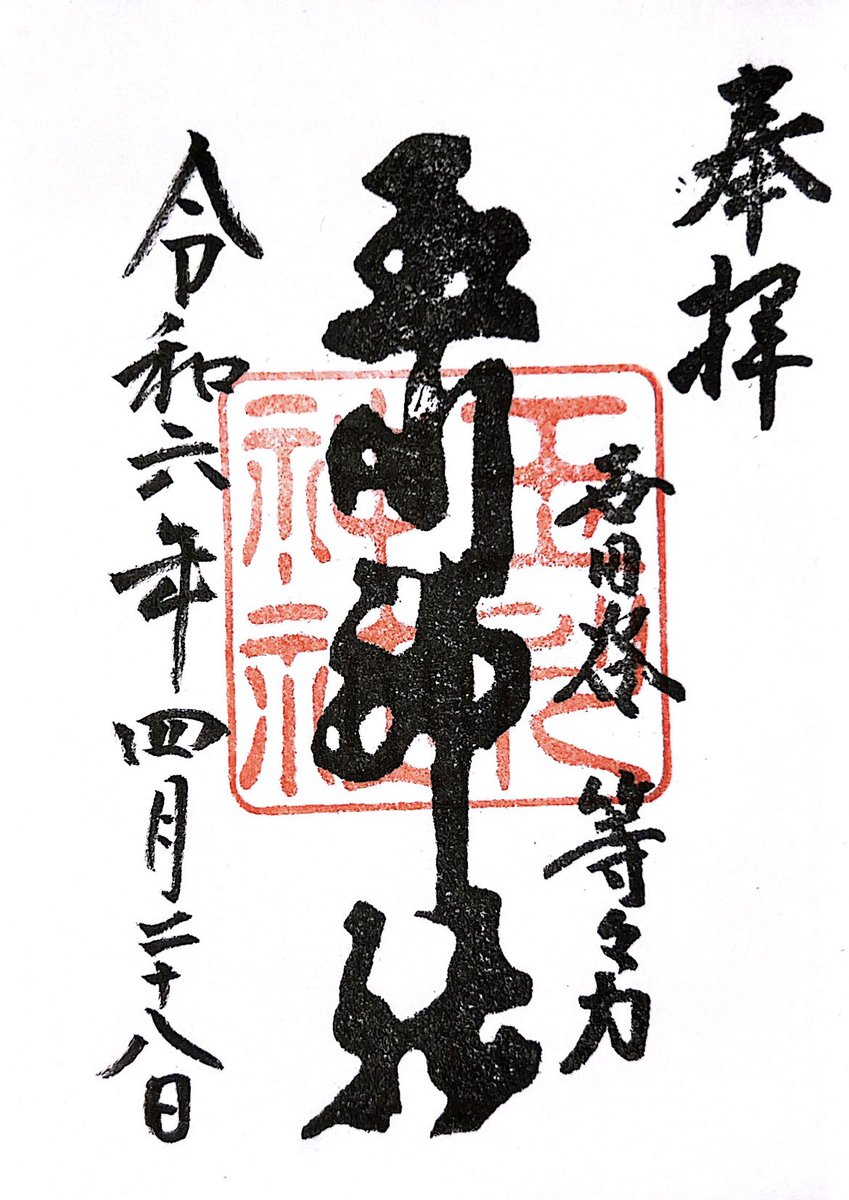 奉拝
世田谷 等々力
玉川神社
令和六年四月二十八日